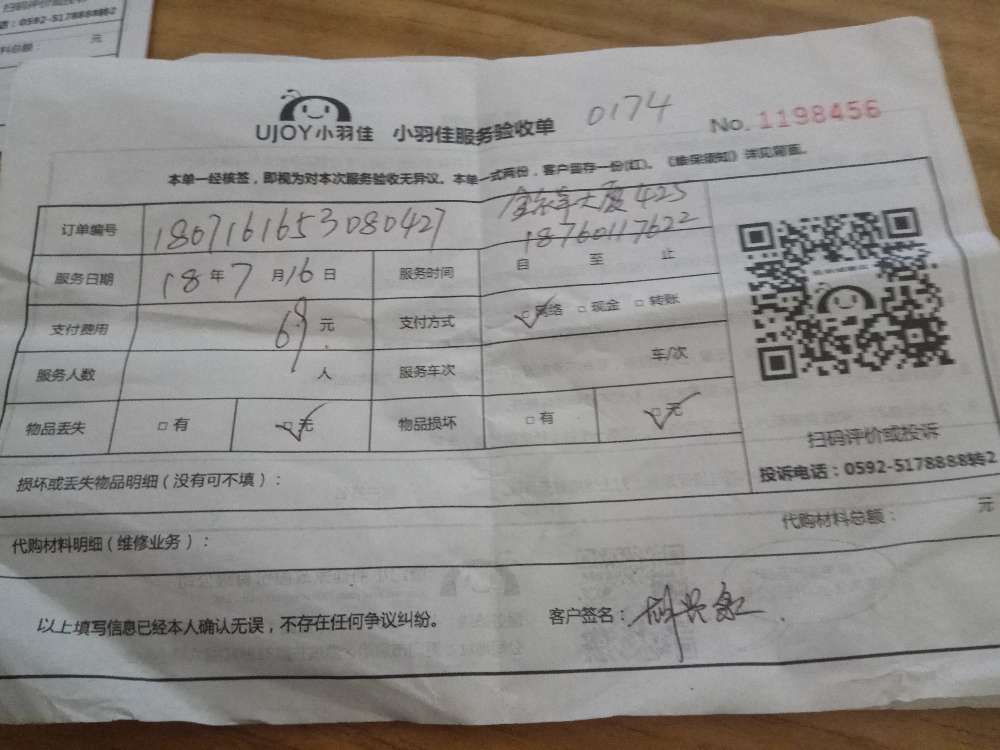 话：0592-5178888转2
料总额：
元
UJOY小羽佳 小羽佳服务验收单 0174 No. 1198456
本单一经核签，即视为对本次服务验收无异议。本单一式两份，客户留存一份(红)。《维保须知》详见背面。
订单编号 1807161653080427
金东华大厦425
18760117622
服务日期 18年7月16日 服务时间 自 至 止
支付费用 69元 支付方式 □网络 □现金 □转账
服务人数 人 服务车次 车/次
物品丢失 □有 □无 物品损坏 □有 □无
扫码评价或投诉
投诉电话：0592-5178888转2
损坏或丢失物品明细（没有可不填）：
代购材料明细（维修业务）： 代购材料总额： 元
以上填写信息已经本人确认无误，不存在任何争议纠纷。 客户签名：